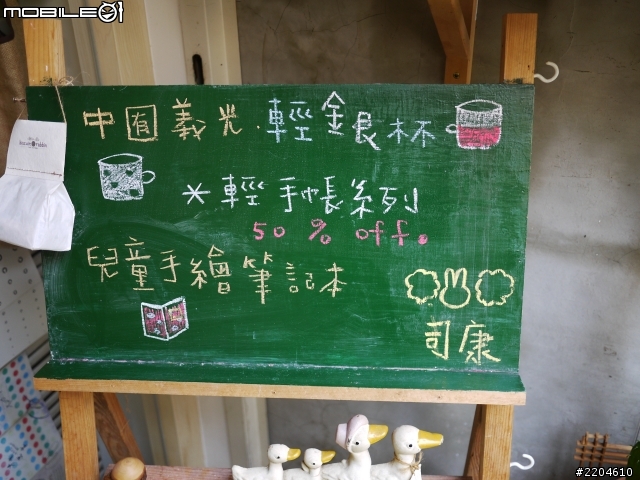 MOBILE01
中囿義光.輕金艮杯
*輕手帳系列
50% off.
兒童手繪筆記本
司康
#2204610